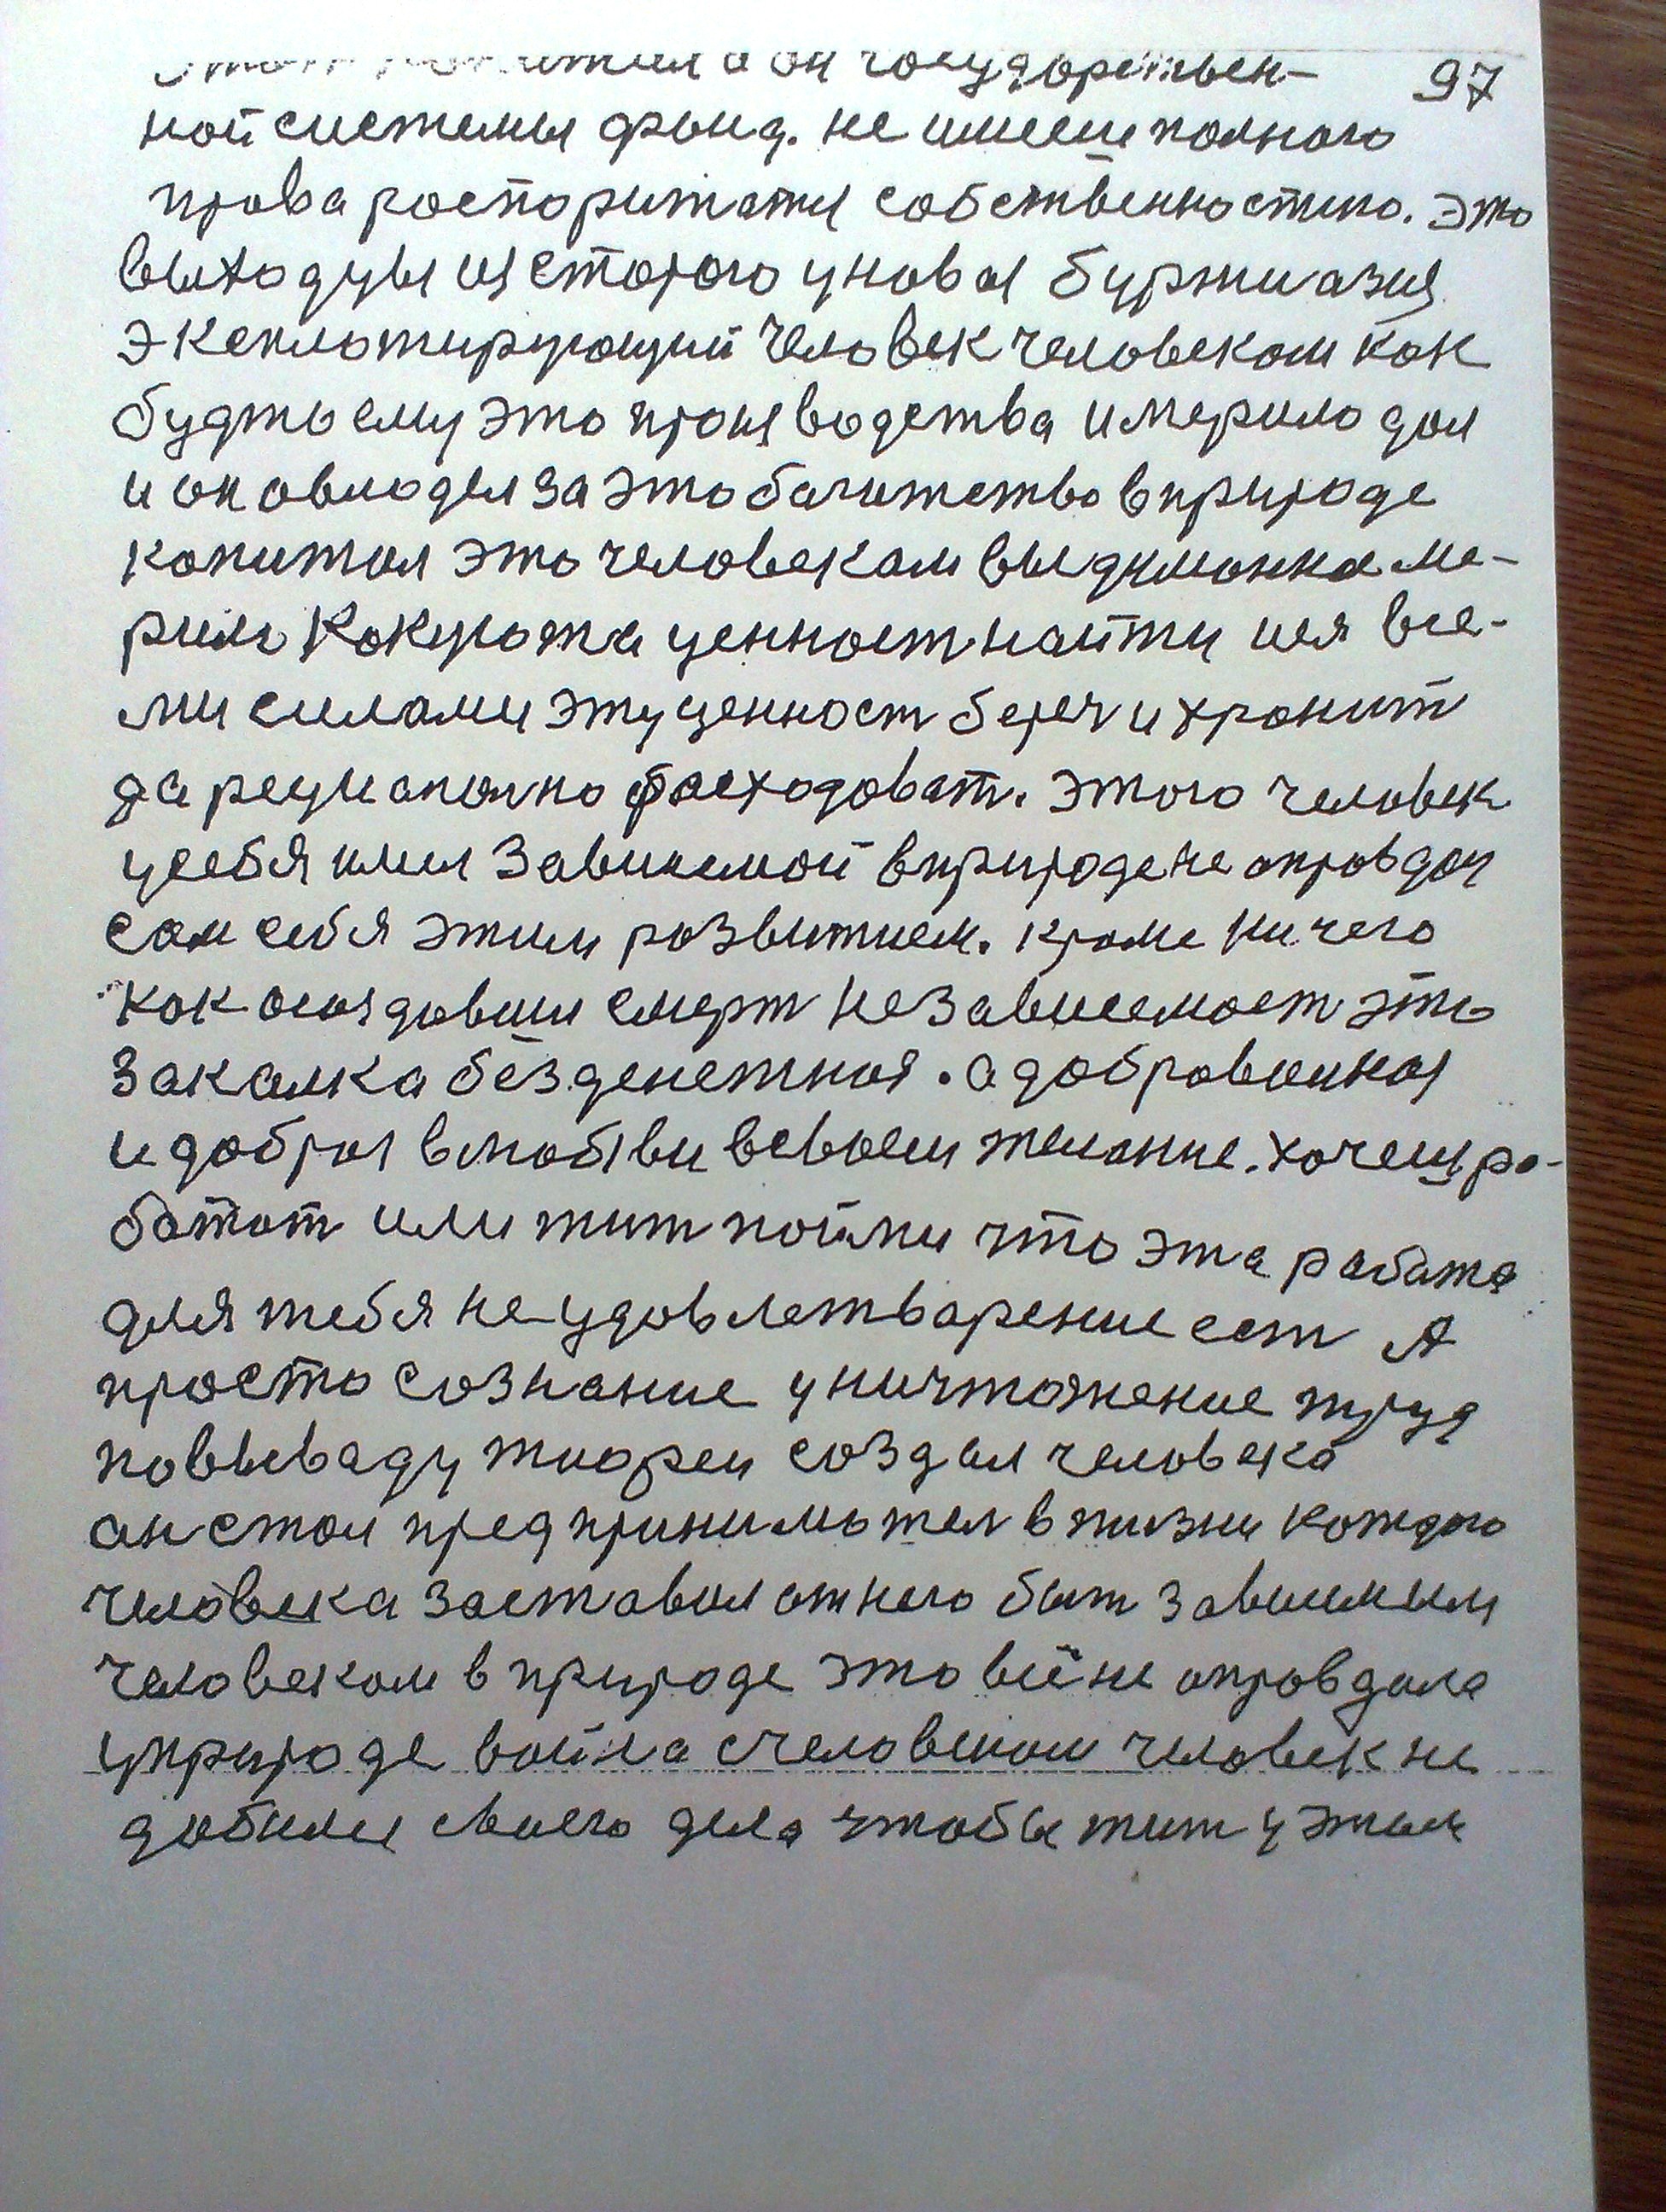 а он государствен- 97
ной системы фонд. не имеет полного
права роспоритатся собственностию. это
выходцы из старого и новая буржуазия
эксплотирующий человек человеком как
будто ему это производства и мерило дал
и он овлодел за это богатство в природе
копитал это человеком выдуманная ме-
рило Какуюта ценност найти ися все-
ми силами эту ценност береч и хронит
да рецианально расходоват. этого человек
у себя имел Зависемой в природе не оправдал
сам себя этим развитием. кроме ничего
как создавши смерт независемост это
закалка безденежная. а добравольная
и добрая в любви в своем желание. хочеш ро-
ботат или жит пойми что эта работа
для тебя не удовлетварение ест А
просто сознание уничтожение труд
по вываду теореи создал человека
ан стал предпринимател в жизни каждого
человека заставил от него быт зависимым
человеком в природе это всё не оправдала
у природе война с человеком человек не
добился своего дела чтобы жит у этим